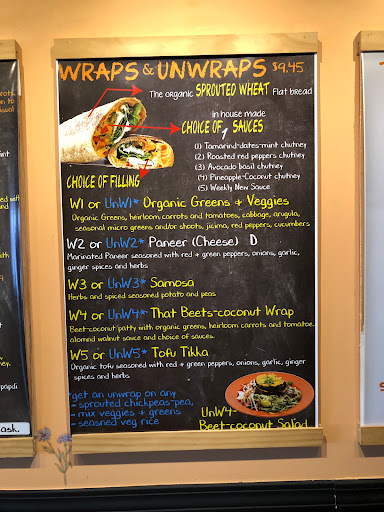 WRAPS & UNWRAPS $9.45
The organic SPROUTED WHEAT Flat bread
In house made
CHOICE OF, SAUCES
(1) Tamarind-dates-mint chutney
(2) Roasted red peppers chutney
(3) Avocado basil chutney
(4) Pineapple-Coconut chutney
(5) Weekly New Sauce
CHOICE OF FILLING
W1 or UnW1* Organic Greens & Veggies
Organic Greens, heirloom carrots and tomatoes, cabbage, arugula,
seasonal micro greens and/or shoots, jicima, red peppers, cucumbers
W2 or UnW2* Paneer (Cheese) D
Marinated Paneer seasoned with red + green peppers, onions, garlic,
ginger spices and herbs
W3 or UnW3* Samosa
Herbs and spiced seasoned potato and peas
W4 or UnW4* That Beets-coconut Wrap
Beet-coconut patty with organic greens, heirloom carrots and tomatoe,
alomnd walnut sauce and choice of sauces.
W5 or UnW5* Tofu Tikka
Organic tofu seasoned with red + green peppers, onions, garlic, ginger
spices and herbs
*get an unwrap on any
- sprouted chickpeas-pea,
- mix veggies & greens
- seasned veg rice
UnW4-
Beet-coconut Salad
papdi
ask.